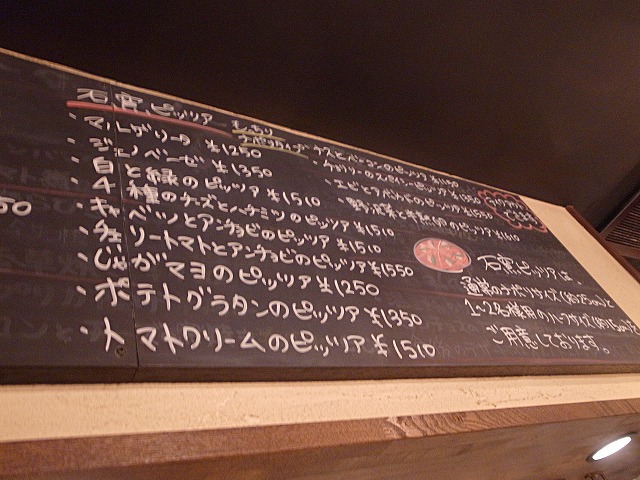 石窯ピッツァ
もっちり
ナポリタイプ
・マルゲリータ ¥1250
・ジェノベーゼ ¥1350
・白と緑のピッツァ ¥1510
・4種のチーズとハチミツのピッツァ ¥1510
・キャベツとアンチョビのピッツァ ¥1510
・チェリートマトとアンチョビのピッツァ ¥1550
・じゃがマヨのピッツァ ¥1250
・ポテトグラタンのピッツァ ¥1350
・トマトクリームのピッツァ ¥1510
・ナスとベーコンのピッツァ
のスパイシーピッツァ ¥1550
・エビとアボカドのピッツァ ¥1550
のピッツァ ¥1610
できます
石窯ピッツァは、
通常のナポリサイズ(約25cm)と
1~2名様用のハーフサイズ(約15cm)を
ご用意しております。
50